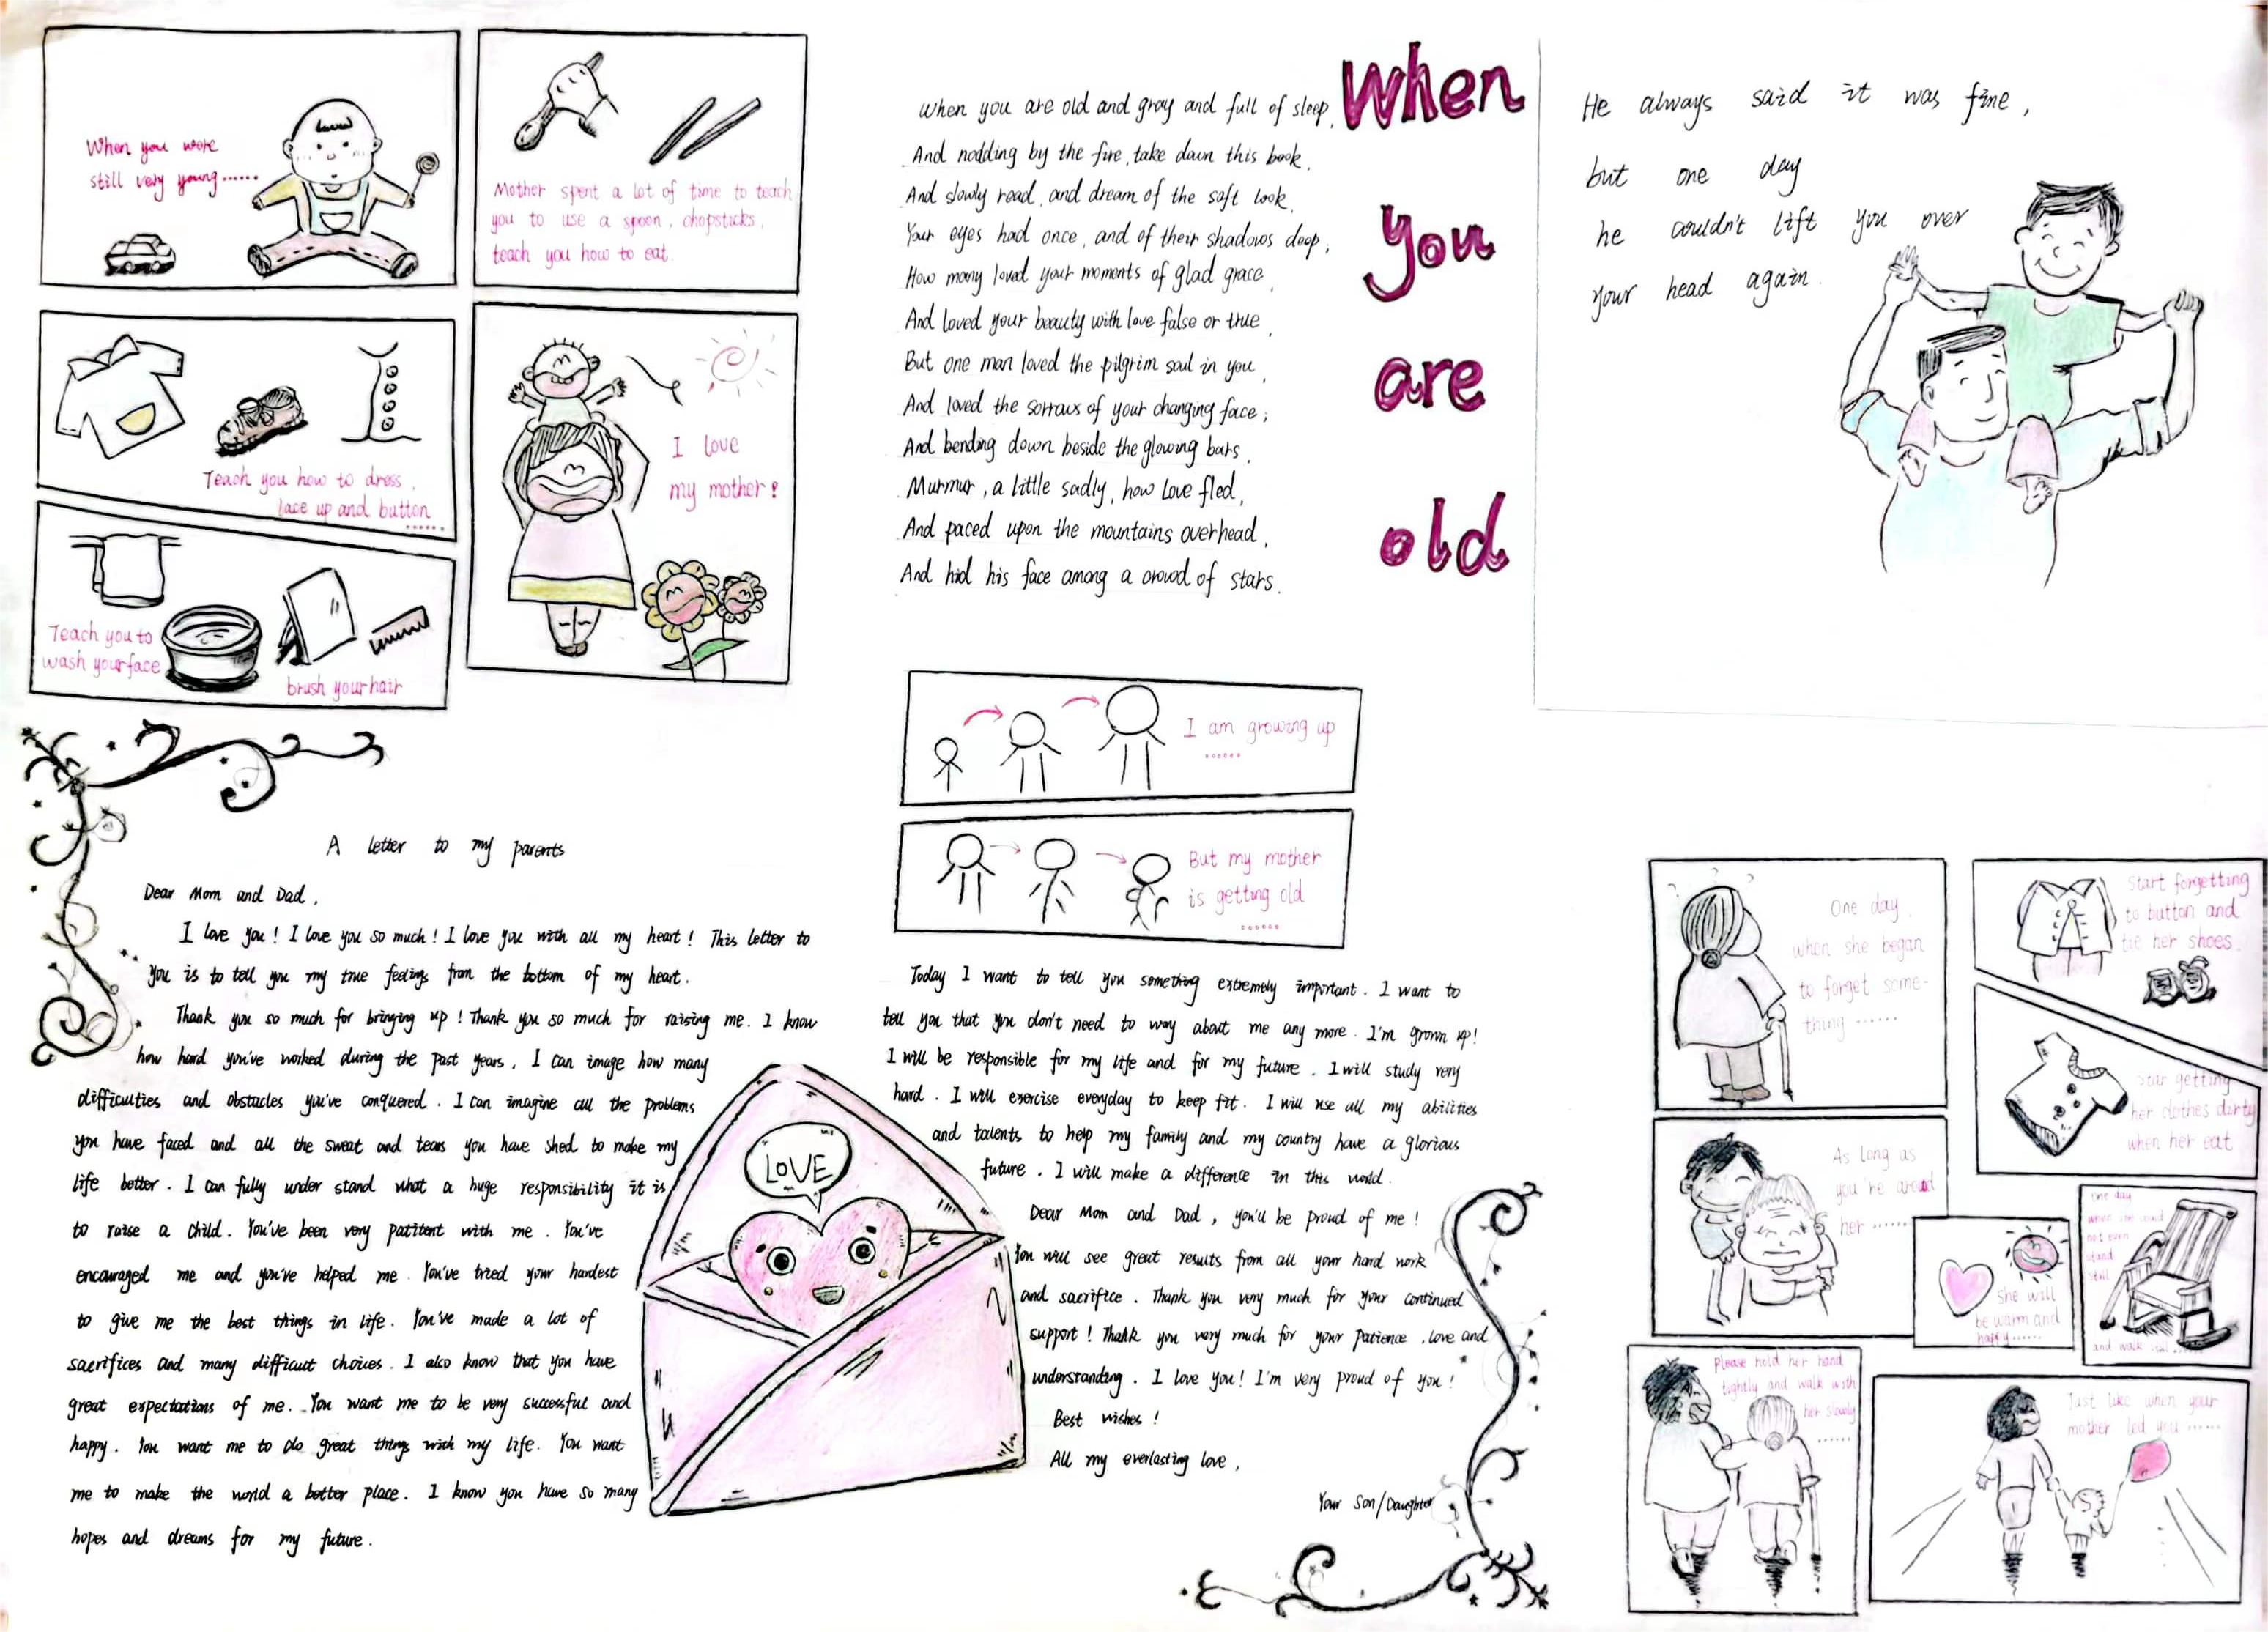 When you were
still very young......
Mother spent a lot of time to teach
you to use a spoon, chopsticks,
teach you how to eat.
Teach you how to dress,
lace up and button
......
I love
my mother!
Teach you to
wash your face
brush your hair
When you are old
When you are old and gray and full of sleep,
And nodding by the fire, take down this book,
And slowly read, and dream of the soft look,
Your eyes had once, and of their shadows deep;
How many loved your moments of glad grace,
And loved your beauty with love false or true,
But one man loved the pilgrim soul in you,
And loved the sorrows of your changing face;
And bending down beside the glowing bars,
Murmur, a little sadly, how Love fled,
And paced upon the mountains overhead,
And hid his face among a crowd of stars.
He always said it was fine,
but one day
he couldn't lift you over
your head again.
I am growing up
......
But my mother
is getting old
......
A letter to my parents
Dear Mom and Dad,
I love you! I love you so much! I love you with all my heart! This letter to
you is to tell you my true feelings from the bottom of my heart.
Thank you so much for bringing up! Thank you so much for raising me. I know
how hard you've worked during the past years. I can image how many
difficulties and obstacles you've conquered. I can imagine all the problems
you have faced and all the sweat and tears you have shed to make my
life better. I can fully under stand what a huge responsibility it is
to raise a child. You've been very patitent with me. You've
encouraged me and you've helped me. You've tried your hardest
to give me the best things in life. You've made a lot of
sacrifices and many difficult choices. I also know that you have
great expectations of me. You want me to be very successful and
happy. You want me to do great things with my life. You want
me to make the world a better place. I know you have so many
hopes and dreams for my future.
LOVE
Today I want to tell you something extremely important. I want to
tell you that you don't need to wory about me any more. I'm grown up!
I will be responsible for my life and for my future. I will study very
hard. I will exercise everyday to keep fit. I will use all my abilities
and talents to help my family and my country have a glorious
future. I will make a difference in this world.
Dear Mom and Dad, you'll be proud of me!
You will see great results from all your hard work
and sacrifice. Thank you very much for your continued
support! Thank you very much for your patience, love and
understanding. I love you! I'm very proud of you!
Best wishes!
All my everlasting love,
Your Son/Daughter
One day,
when she began
to forget some-
thing ......
Start forgetting
to button and
tie her shoes.
Star getting
her clothes dirty
when her eat
As long as
you're around
her ......
she will
be warm and
happy......
One day
when she could
not even
stand
still
and walk
please hold her hand
tightly and walk with
her slowly
......
Just like when your
mother led you ......